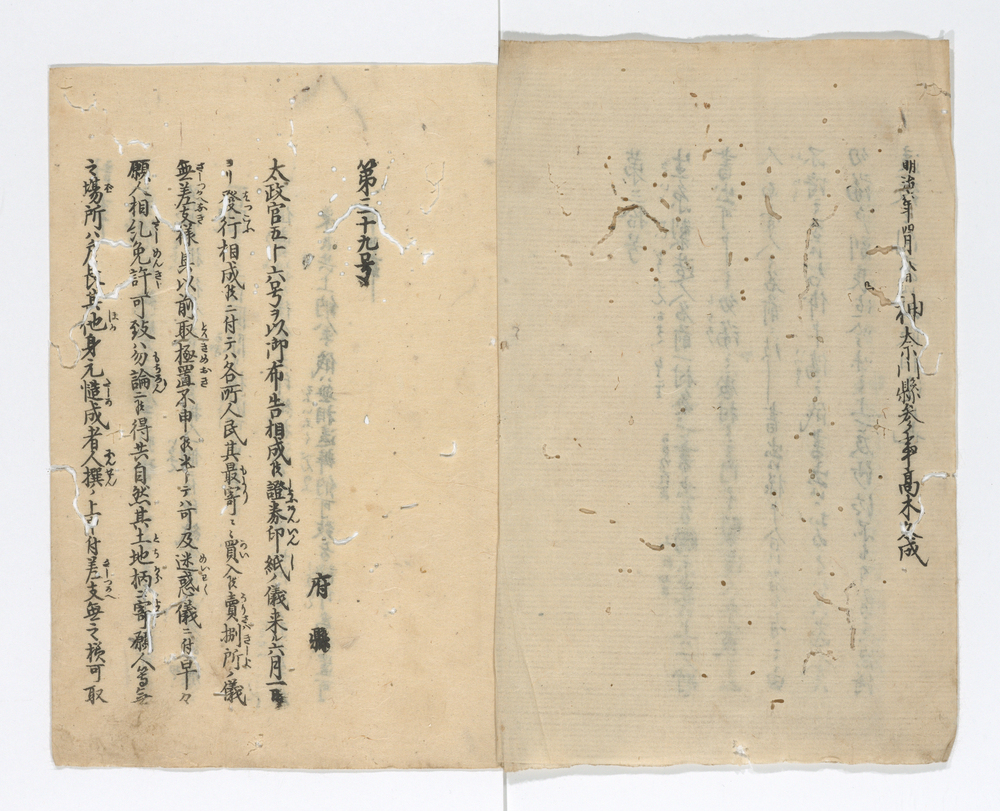 明治六年四月八日 神奈川縣参事高木久成
第二十九号
府縣
太政官五十六号ヲ以御布告相成候證券印紙ノ儀来ル六月一日
ヨリ發行相成候ニ付テハ各所人民其最寄ニ買入候賣捌所ノ儀
無差支様具以前取極置不申候半テハ可及迷惑儀ニ付早々
願人相糺免許可致ハ勿論ニ候得共自然其土地柄ニ寄願人等無
之場所ハ戸長其他身元慥成者人撰ノ上申付差支無之様可取